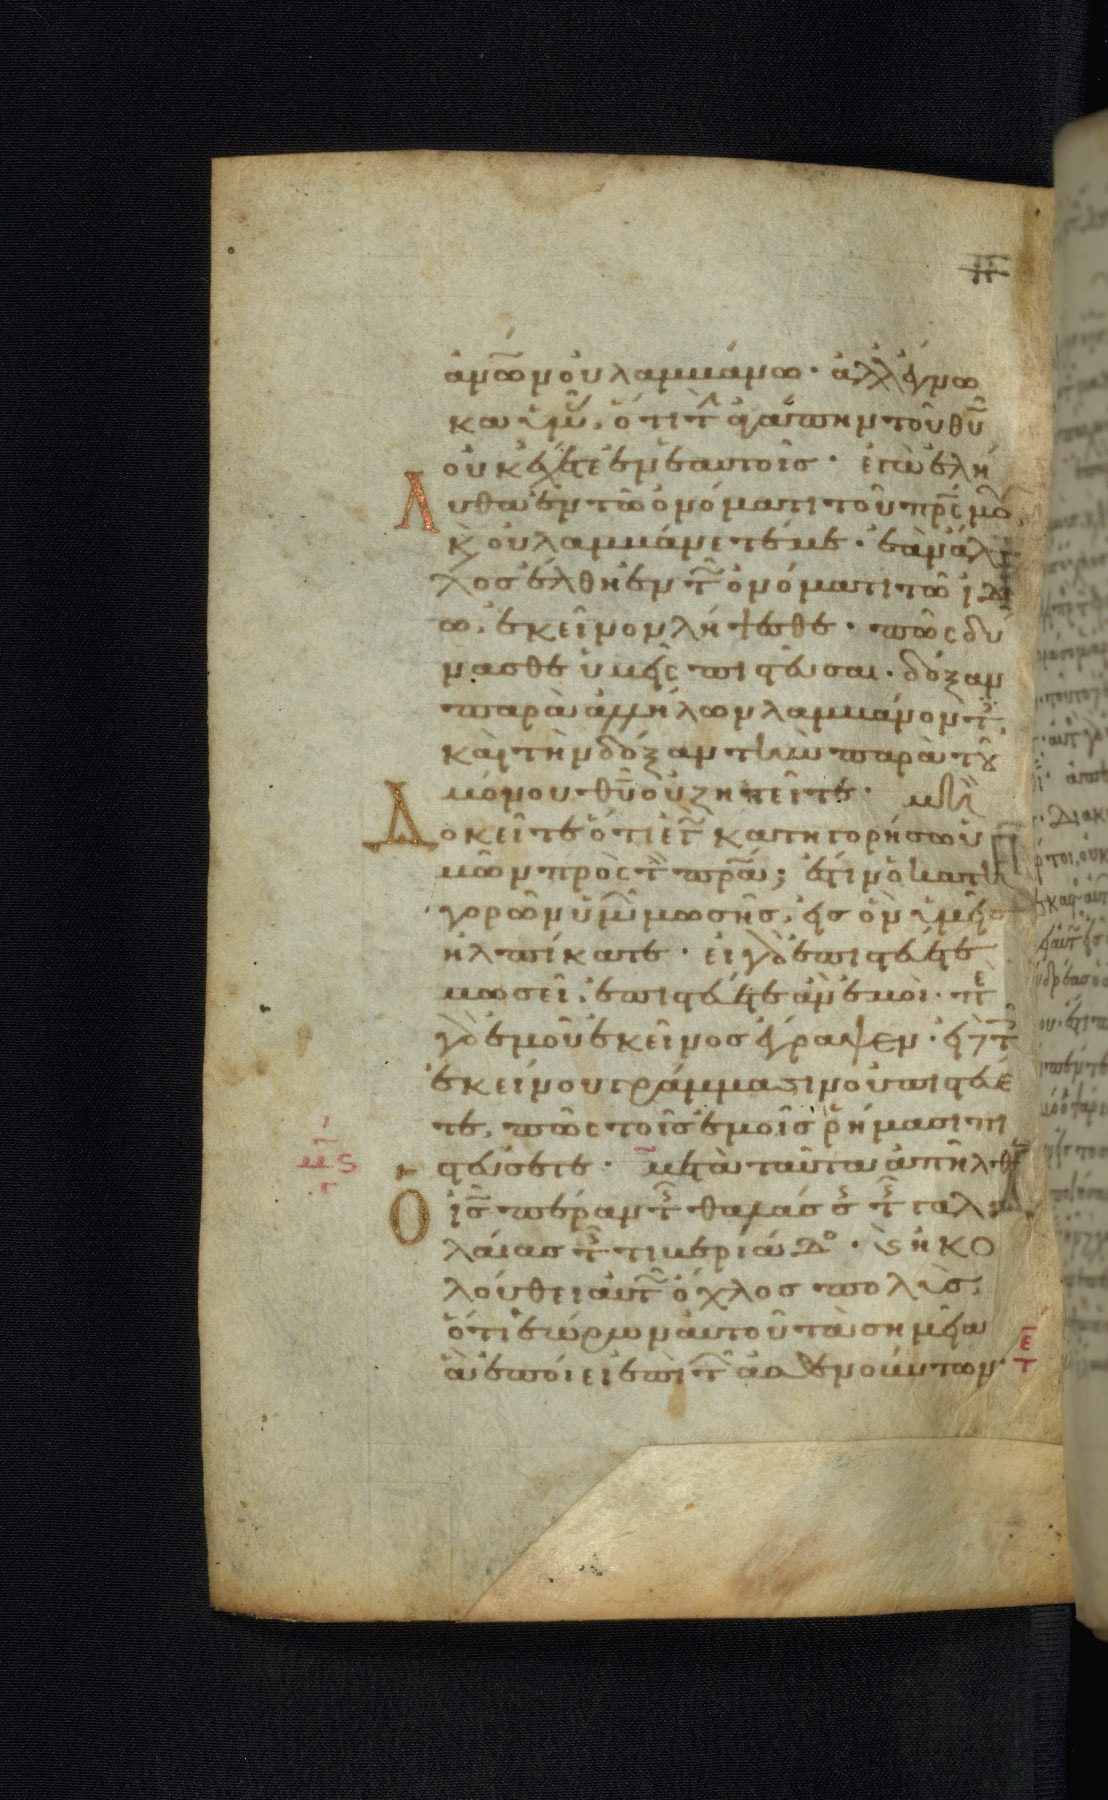 ἀνῶν οὐ λαμβάνω· ἀλλ' ἔγνω
κα ὑμᾶς, ὅτι τὴν ἀγάπην τοῦ θῦ
οὐκ ἔχετε ἐν ἑαυτοῖς· ἐγὼ ἐλή
Λυθα ἐν τῶ ὀνόματι τοῦ πρς μου
κ οὐ λαμβάνετέ με· ἐὰν ἄλ
λος ἔλθη ἐν τῶ ὀνόματι τῶ ἰδί
ω, ἐκεῖνον λήψεσθε· πῶς δύ
νασθε ὑμεῖς πιστεῦσαι· δόξαν
παρὰ ἀλλήλων λαμβάνοντες
καὶ τὴν δόξαν τὴν παρὰ τοῦ
μόνου θῦ οὐ ζητεῖτε· μὴ
Δοκεῖτε ὅτι ἐγὼ κατηγορήσω ὑ
μῶν πρὸς τὸν πρα; ἔστιν ὁ κατη
γορῶν ὑμῶν μωσῆς, εἰς ὃν ὑμεῖς
ἠλπίκατε· εἰ γὰρ ἐπιστεύετε
μωσεῖ, ἐπιστεύετε ἂν ἐμοί· περὶ
γὰρ ἐμοῦ ἐκεῖνος ἔγραψεν· εἰ δὲ τοῖς
ἐκείνου γράμμασιν οὐ πιστεύε
τε, πῶς τοῖς ἐμοῖς ῥήμασι πι
στεύσετε· μετὰ ταῦτα ἀπῆλθεν
Ὁ ἰς πέραν τῆς θαλάσσης τῆς γαλι
λαίας τῆς τιβεριάδο· κ ἠκο
λούθει αὐτῶ ὄχλος πολὺς,
ὅτι ἑώρων αὐτοῦ τὰ σημεῖα
ἃ ἐποίει ἐπὶ τῶν ἀσθενούντων·